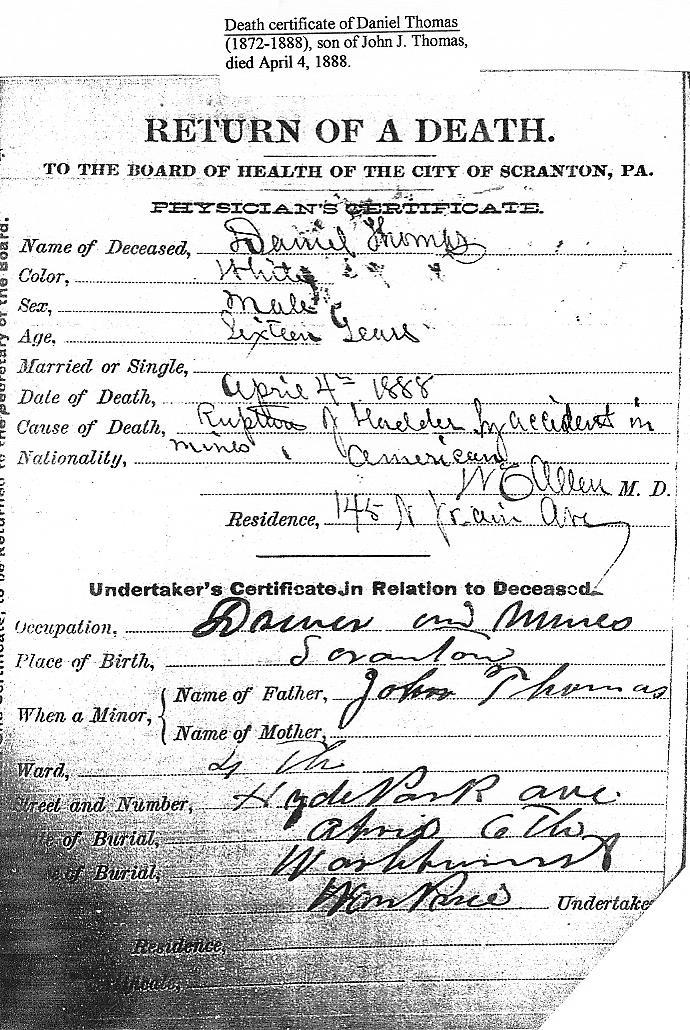 Death certificate of Daniel Thomas
(1872-1888), son of John J. Thomas,
died April 4, 1888.
RETURN OF A DEATH.
TO THE BOARD OF HEALTH OF THE CITY OF SCRANTON, PA.
PHYSICIAN'S CERTIFICATE.
Name of Deceased, Daniel Thomas
Color, White
Sex, Male
Age, Sixteen Years
Married or Single,
Date of Death, April 4th 1888
Cause of Death, Rupture of bladder by accident in
mines
Nationality, American
W E Allen M. D.
Residence, 145 N Main Ave
Undertaker's Certificate in Relation to Deceased.
Occupation, Driver in Mines
Place of Birth, Scranton
When a Minor, Name of Father, John Thomas
Name of Mother,
Ward, 4 th
Street and Number, Hyde Park ave.
of Burial, April 6th
of Burial, Washburn St
Wm Price Undertake
Residence,